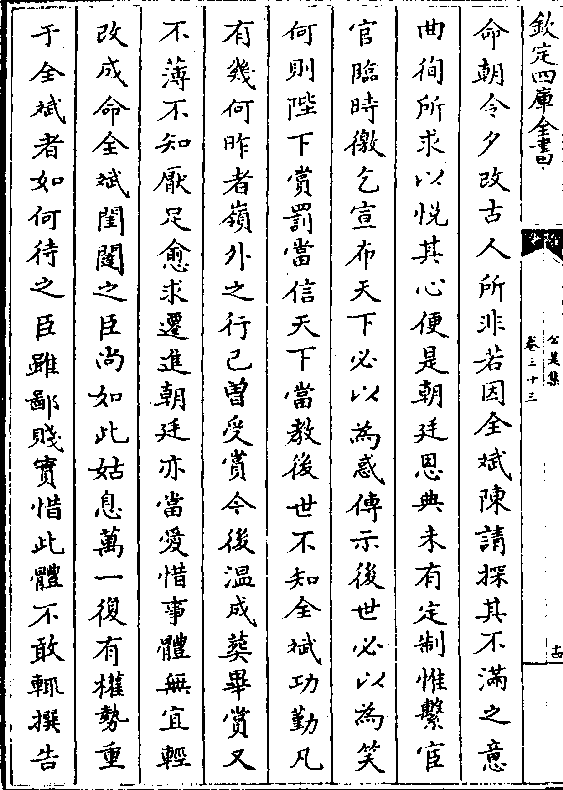 欽定四庫全書
公是集
卷三十三
古
命朝令夕改古人所非若因全斌陳請探其不滿之意
曲徇所求以悦其心便是朝廷恩典未有定制惟繫宦
官臨時徼乞宣布天下必以為惑傳示後世必以為笑
何則陛下賞罰當信天下當教後世不知全斌功勤凡
有幾何昨者嶺外之行已曽受賞今後温成葬畢賞又
不薄不知厭足愈求遷進朝廷亦當愛惜事體無宜輕
改成命全斌閨闥之臣尚如此姑息萬一復有權勢重
于全斌者如何待之臣雖鄙賤實惜此體不敢輒撰告